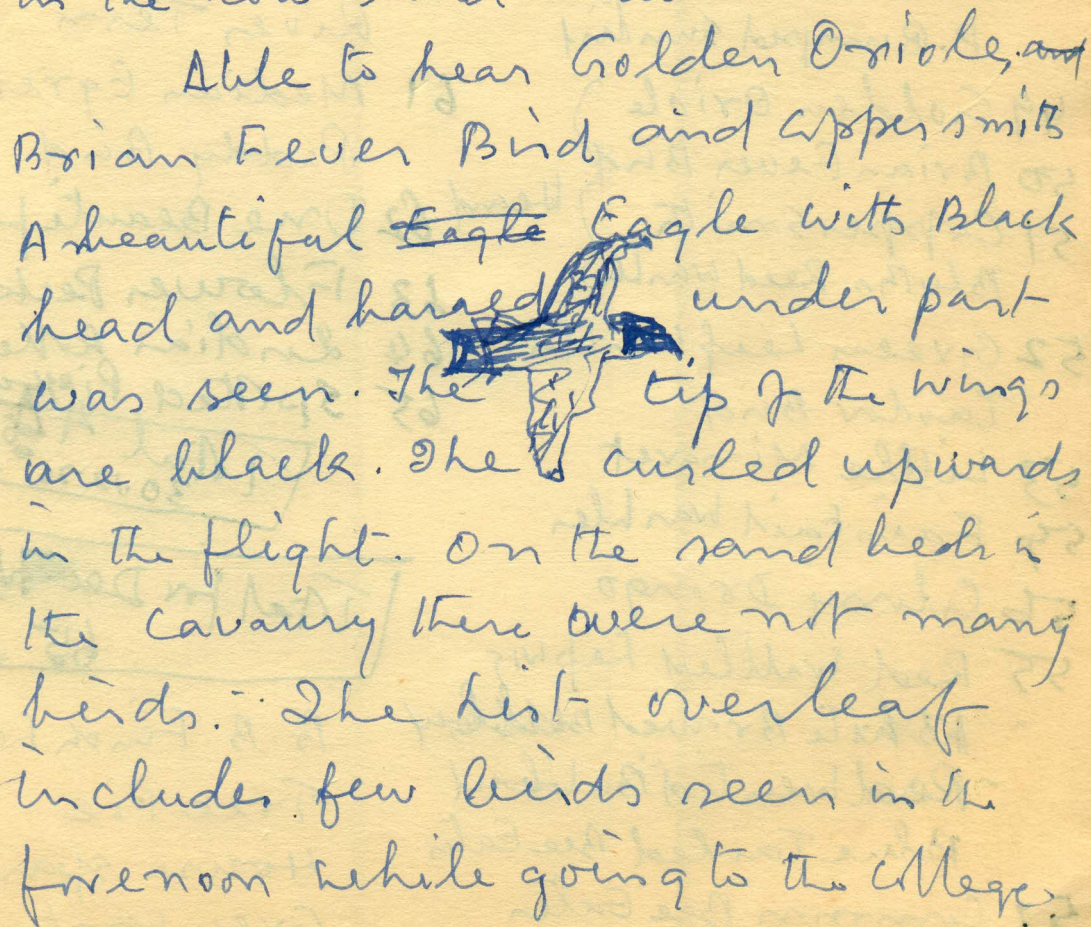 Able to hear Golden Oriole, and
Brian Fever Bird and Coppersmith
A beautiful Eagle Eagle with Black
head and barred under part
was seen. The tip of the wings
are black. The curled upwards
in the flight. On the sand beds in
the Cavaury there were not many
birds. The list overleaf
includes few birds seen in the
forenoon while going to the College.